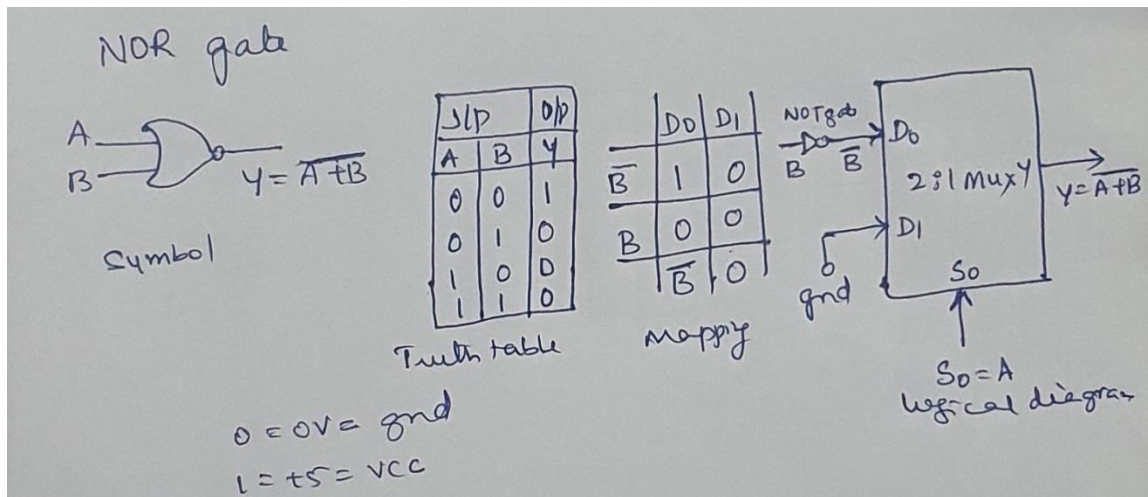 NOR gate
A
B
Y = \overline{A+B}
Symbol
I/p | O/p
A | B | Y
0 | 0 | 1
0 | 1 | 0
1 | 0 | 0
1 | 1 | 0
Truth table
D0 | D1
B̅ | 1 | 0
B | 0 | 0
B̅ | 0
NOT gate
B
B̅
D0
2:1 Mux Y
Y = \overline{A+B}
D1
gnd
S0
S0 = A
logical diagram
0 = 0V = gnd
1 = +5 = VCC